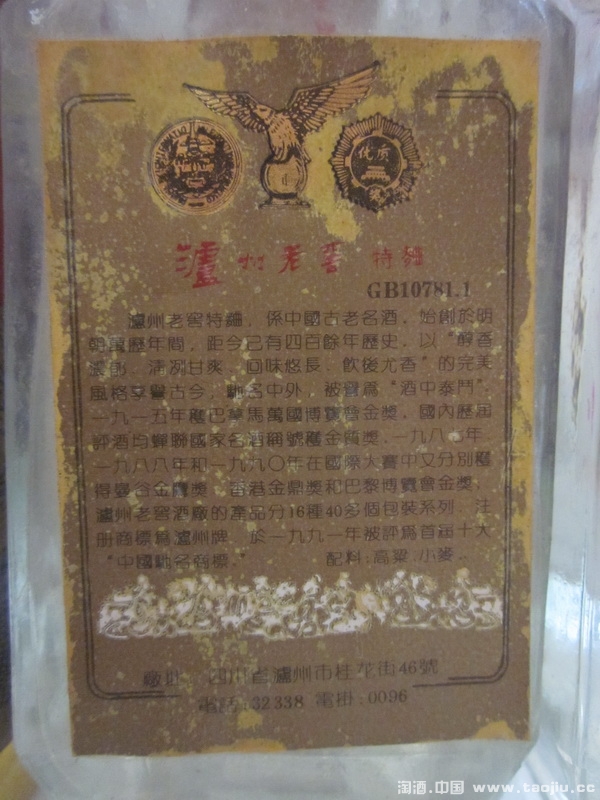 优质
瀘州老窖 特麯
GB10781.1
瀘州老窖特麯，係中國古老名酒，始創於明
朝萬歷年間，距今已有四百餘年歷史，以“醇香
濃郁、清冽甘爽、回味悠長、飲後尤香”的完美
風格享譽古今，馳名中外，被譽爲“酒中泰鬥”。
一九一五年獲巴拿馬萬國博覽會金獎，國內歷屆
評酒均蟬聯國家名酒稱號獲金質獎，一九八七年、
一九八八年和一九九〇年在國際大賽中又分別獲
得曼谷金鷹獎、香港金鼎獎和巴黎博覽會金獎，
瀘州老窖酒廠的產品分16種40多個包裝系列，注
册商標爲瀘州牌，於一九九一年被評爲首屆十大
“中國馳名商標。” 配料:高粱.小麥。
廠址：四川省瀘州市桂花街46號
電話:32338 電掛:0096
淘酒.中国 www.taojiu.cc